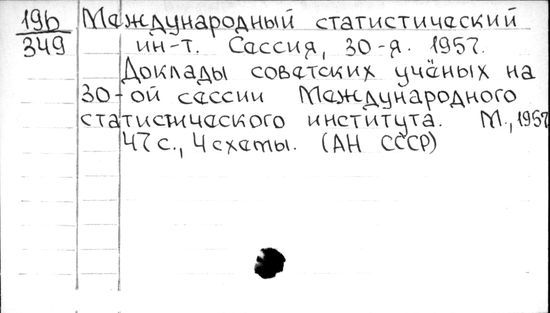 196 Международный статистический
349 ин-т. Сессия, 30-я. 1957.
Доклады советских учёных на
30-ой сессии Международного
статистического института. М., 1957
47 с., 4 схемы. (АН СССР)